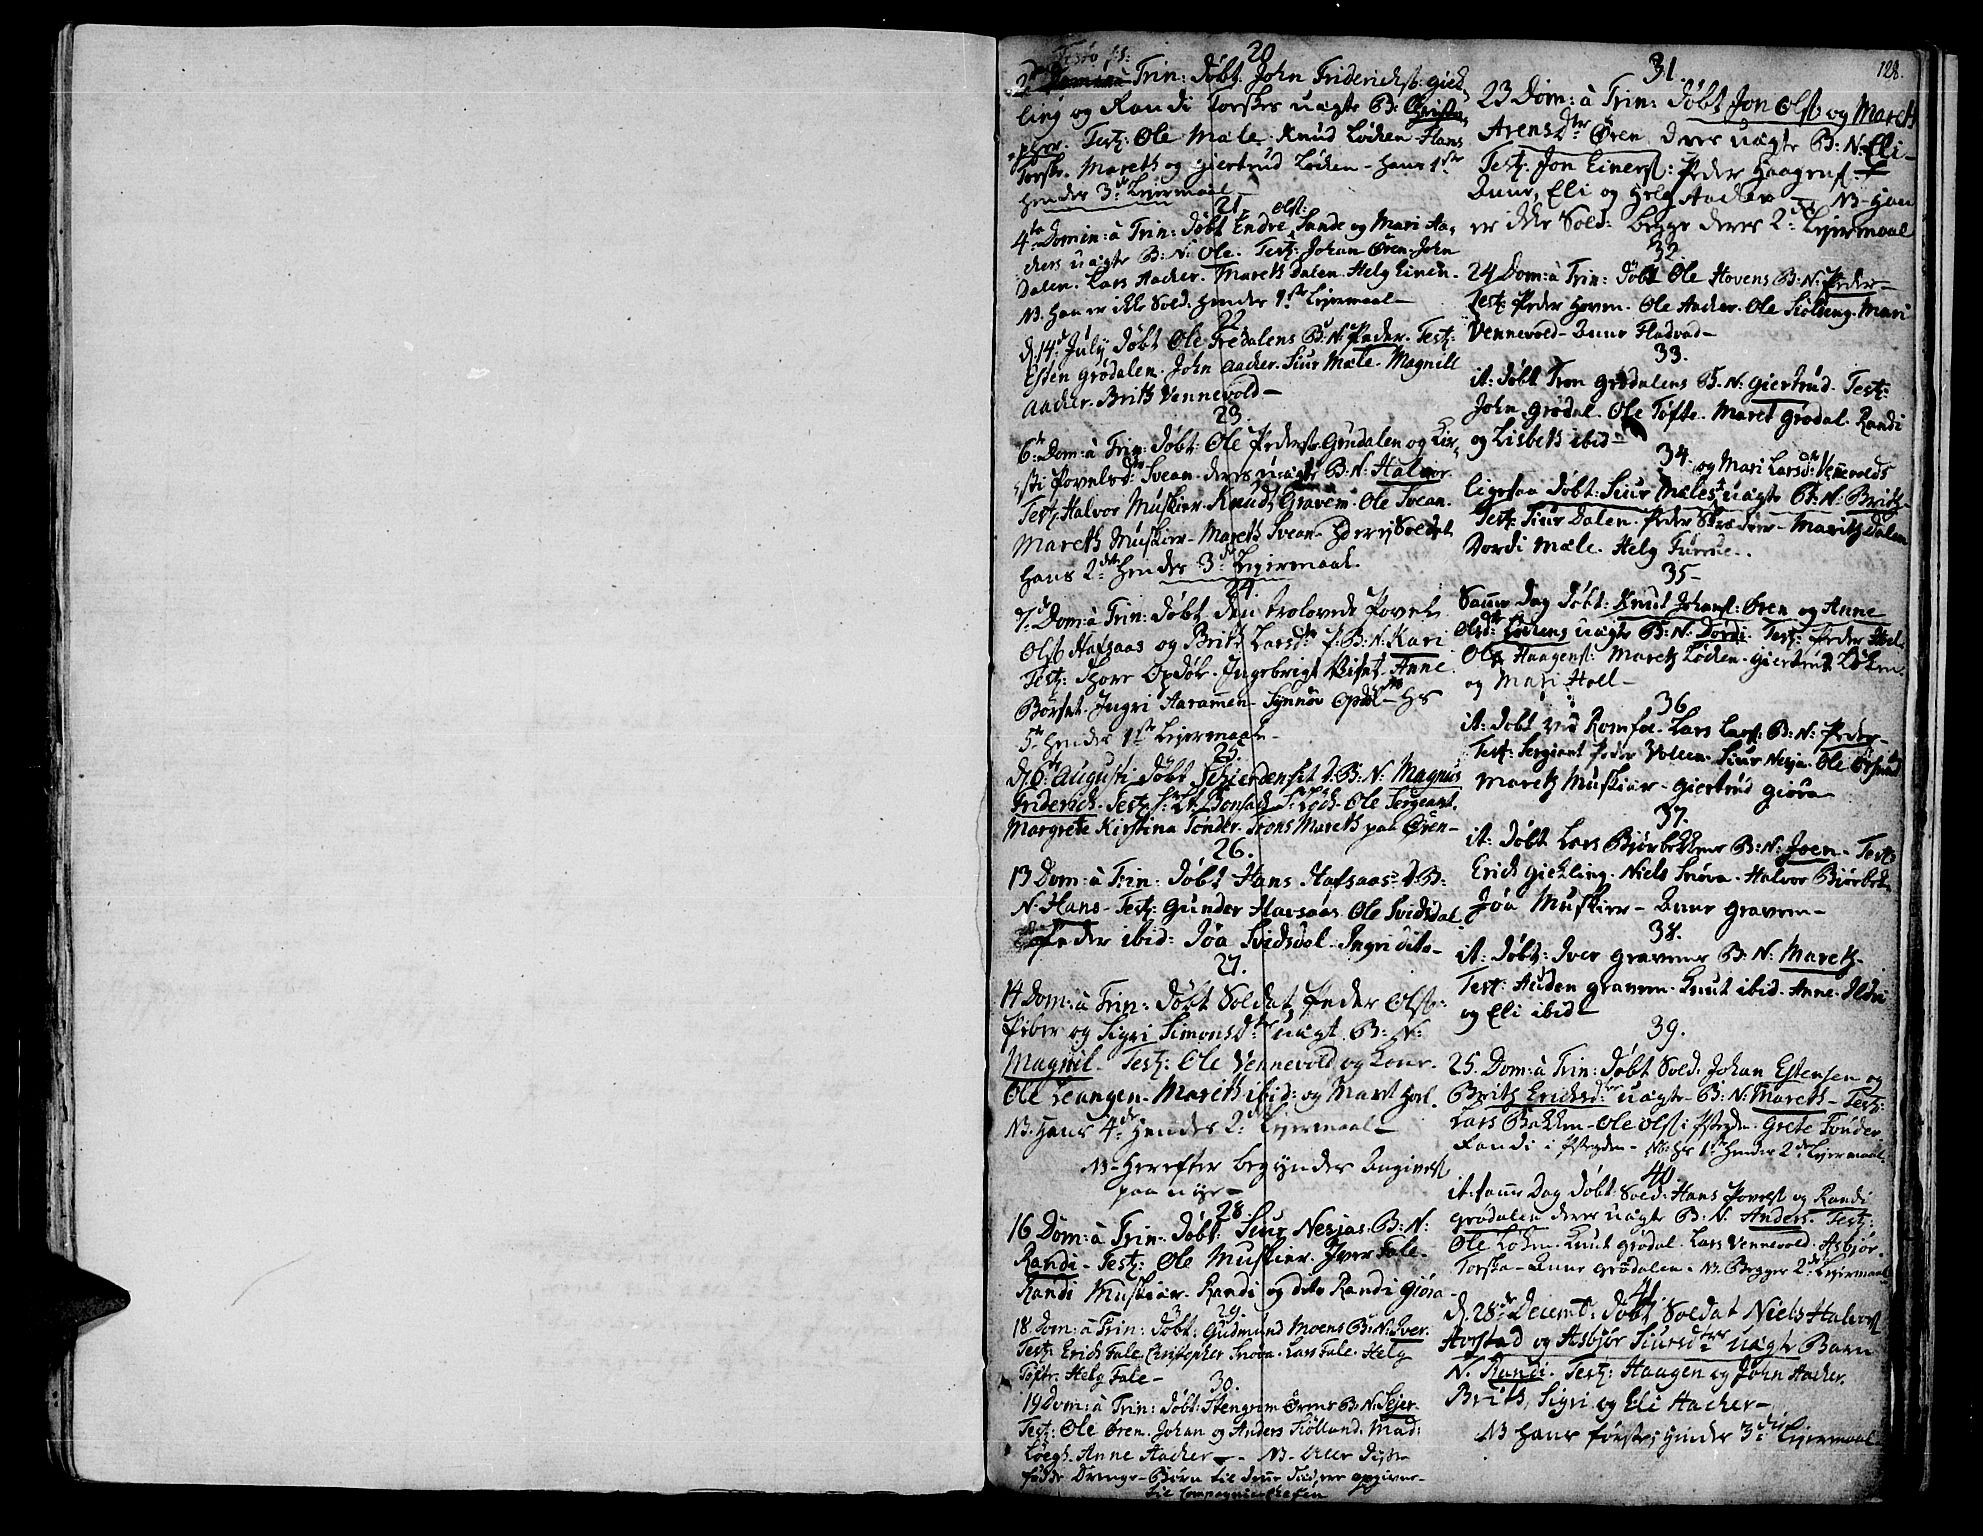 128.
20
Trin: döbt John Friderichs: giek
ling og Randi Torskes uägte B: Christo
pher. Test: Ole Mæle. Knud Löcken Hans
Torske. Mareth og Giertrud Löcken - Hans 1ste
Hendes 3de Leyermaal -
21.
4de Domin: à Trin: döbt Endre Olss: Sande og Mari Aa,
chers uägte B: N: Ole. Test: Johan Ören. John
Dalen. Lars Aacker. Mareth Dalen. Helg
NB. Han er ikke Sold. Hendes 1ste Leyermaal -
22
d. 14de July döbt Ole Fredalens B: N: Peder. Test:
Esten Grödalen. John Aacker. Siur Mæle. Magnill
Aacker. Brith Vennevold -
23.
6te Dom: à Trin: döbt Ole Peders. Grudalen og Kir,
sti Povelsd. Svean deres uägte B: N: Halvor
Test: Halvor Muskier. Knud Gravem. Ole Svean.
Mareth Muskier - Mareth Svean - Soldat
Hans 2den Hendes 3de Leyermaal.
24.
7de Dom: à Trin: döbt den trolovede Povel
Olss Hafsaas og Brith Larsdtr d. B: N: Kari
Test: Thore Opdöl. Ingebrigt Anne
Börset. Ingri Aaramen. Synnöv Opdöl -
5te Hendes 1ste Leyermaal -
25.
d. 6te Augusti döbt d. B: N: Magnus
Friderich. Test: Ole Sergeant.
Margrete Kirstina Tönder. Trons Mareth paa Ören -
26.
13 Dom: à Trin: döbt Hans Hafsaas d. B:
N: Hans - Test: Gunder Havsaas. Ole Svidsdal
Peder ibid: Jöa Svidsdal - Ingri dito -
27.
14 Dom: à Trin: döbt Soldat Peder Olss:
Piber og Sigri Simonsdtr uägt. B: N:
Magnil. Test: Ole Vennevold og Kone.
Ole Leangen. Mareth ibid: og Maret
NB. Hans 4de Hendes 2: Leyermaal -
NB - Herefter begynder Angivels
paa nye -
28.
16 Dom: à Trin: döbt Siur Nesjas B: N:
Randi - Test: Ole Muskier. Iver Fale.
Randi Muskiær. Randi og dito Randi Giöra
29.
18 Dom: à Trin: döbt: Gudmund Moens B: N: Iver.
Test: Erich Fale, Christopher Snöva. Lars Fale. Helg
Töfte. Helg Fale -
30.
19 Dom: à Trin: döbt: Stengrim Örens B: N: Sejer.
Test: Ole Ören. Johan og Anders Fiölland. Mad:
Anne Aacker - NB - Alle disse
födde Drenge-Börn til denne Tiid ere opgivne
til Compagniechefen
31.
23 Dom: à Trin: döbt Jon Olss og Mareth
Arensdtr Ören deres uägte B: N: Eli -
Test: Jon Einerss: Peder Haagens.
Anne, Eli og Helg Aacker - NB - Han
er ikke Sold: begge deres 2: Leyermaal
32.
24 Dom: à Trin: döbt Ole Hovens B: N: Peder -
Test: Peder Hoven. Ole Aacker. Ole Mari
Vennevold - Anne Fladvad -
33.
it: döbt Tron Grödalens B: N: Giertrud. Test:
John Grödal. Ole Töfte. Maret Grödal. Randi
og Lisbeth ibid -
34.
Ligesaa döbt: Siur Mæles og Mari Larsdtr Vennevolds uägte B: N: Brith
Test: Siur Dalen. Peder Marith Dalen
Dordi Mæle. Helg Furue -
35 -
Samme Dag döbt: Knut Johanss: Ören og Anne
Olsdtr Lökens uägte B: N: Dordi. Test: Peder
Ole Haagens: Mareth Löcken. Giertrud Löken.
og Mari Holl -
36
it: döbt ved Romfoe - Lars Larss: B: N: Peder -
Test: Sergiant Peder Volden. Siur Nesja. Ole
Mareth Muskiær - Giertrud Giöra
37.
it: döbt Lars Biörbekkens B: N: Joen - Test:
Erich Giekling. Niels Snöva. Halvor Biörbek
Jöa Muskier - Anne Gravem -
38.
it: döbt: Iver Gravems B: N: Mareth -
Test: Auden Gravem. Knut ibid. Anne. Ildri
og Eli ibid -
39.
25. Dom: à Trin: döbt Sold: Johan Estensen og
Brith Ericksdtr uägte - B: N: Mareth - Test:
Lars Bakken - Ole Olss i Grete Tönder
Randi i - NB: Hs 1ste Hendes 2den Leyermaal -
40.
it: samme Dag döbt: Sold: Hans Povelss og Randi
Grödalen deres uägte B: N: Anders. Test:
Ole Löken. Knut Grödal. Lars Vennevold. Asbjör
Torske - Anne Grödalen - NB. Begges 2den Leyermaal
41.
d. 28de Decemb: döbt Soldat Niels Halvors
Horstad og Asbjör Siursdtr uägte Barn
N. Randi. Test: Haagen og John Aacker.
Brith, Sigri og Eli Aacker -
NB Hans förste, Hendes 3die Leyermaal